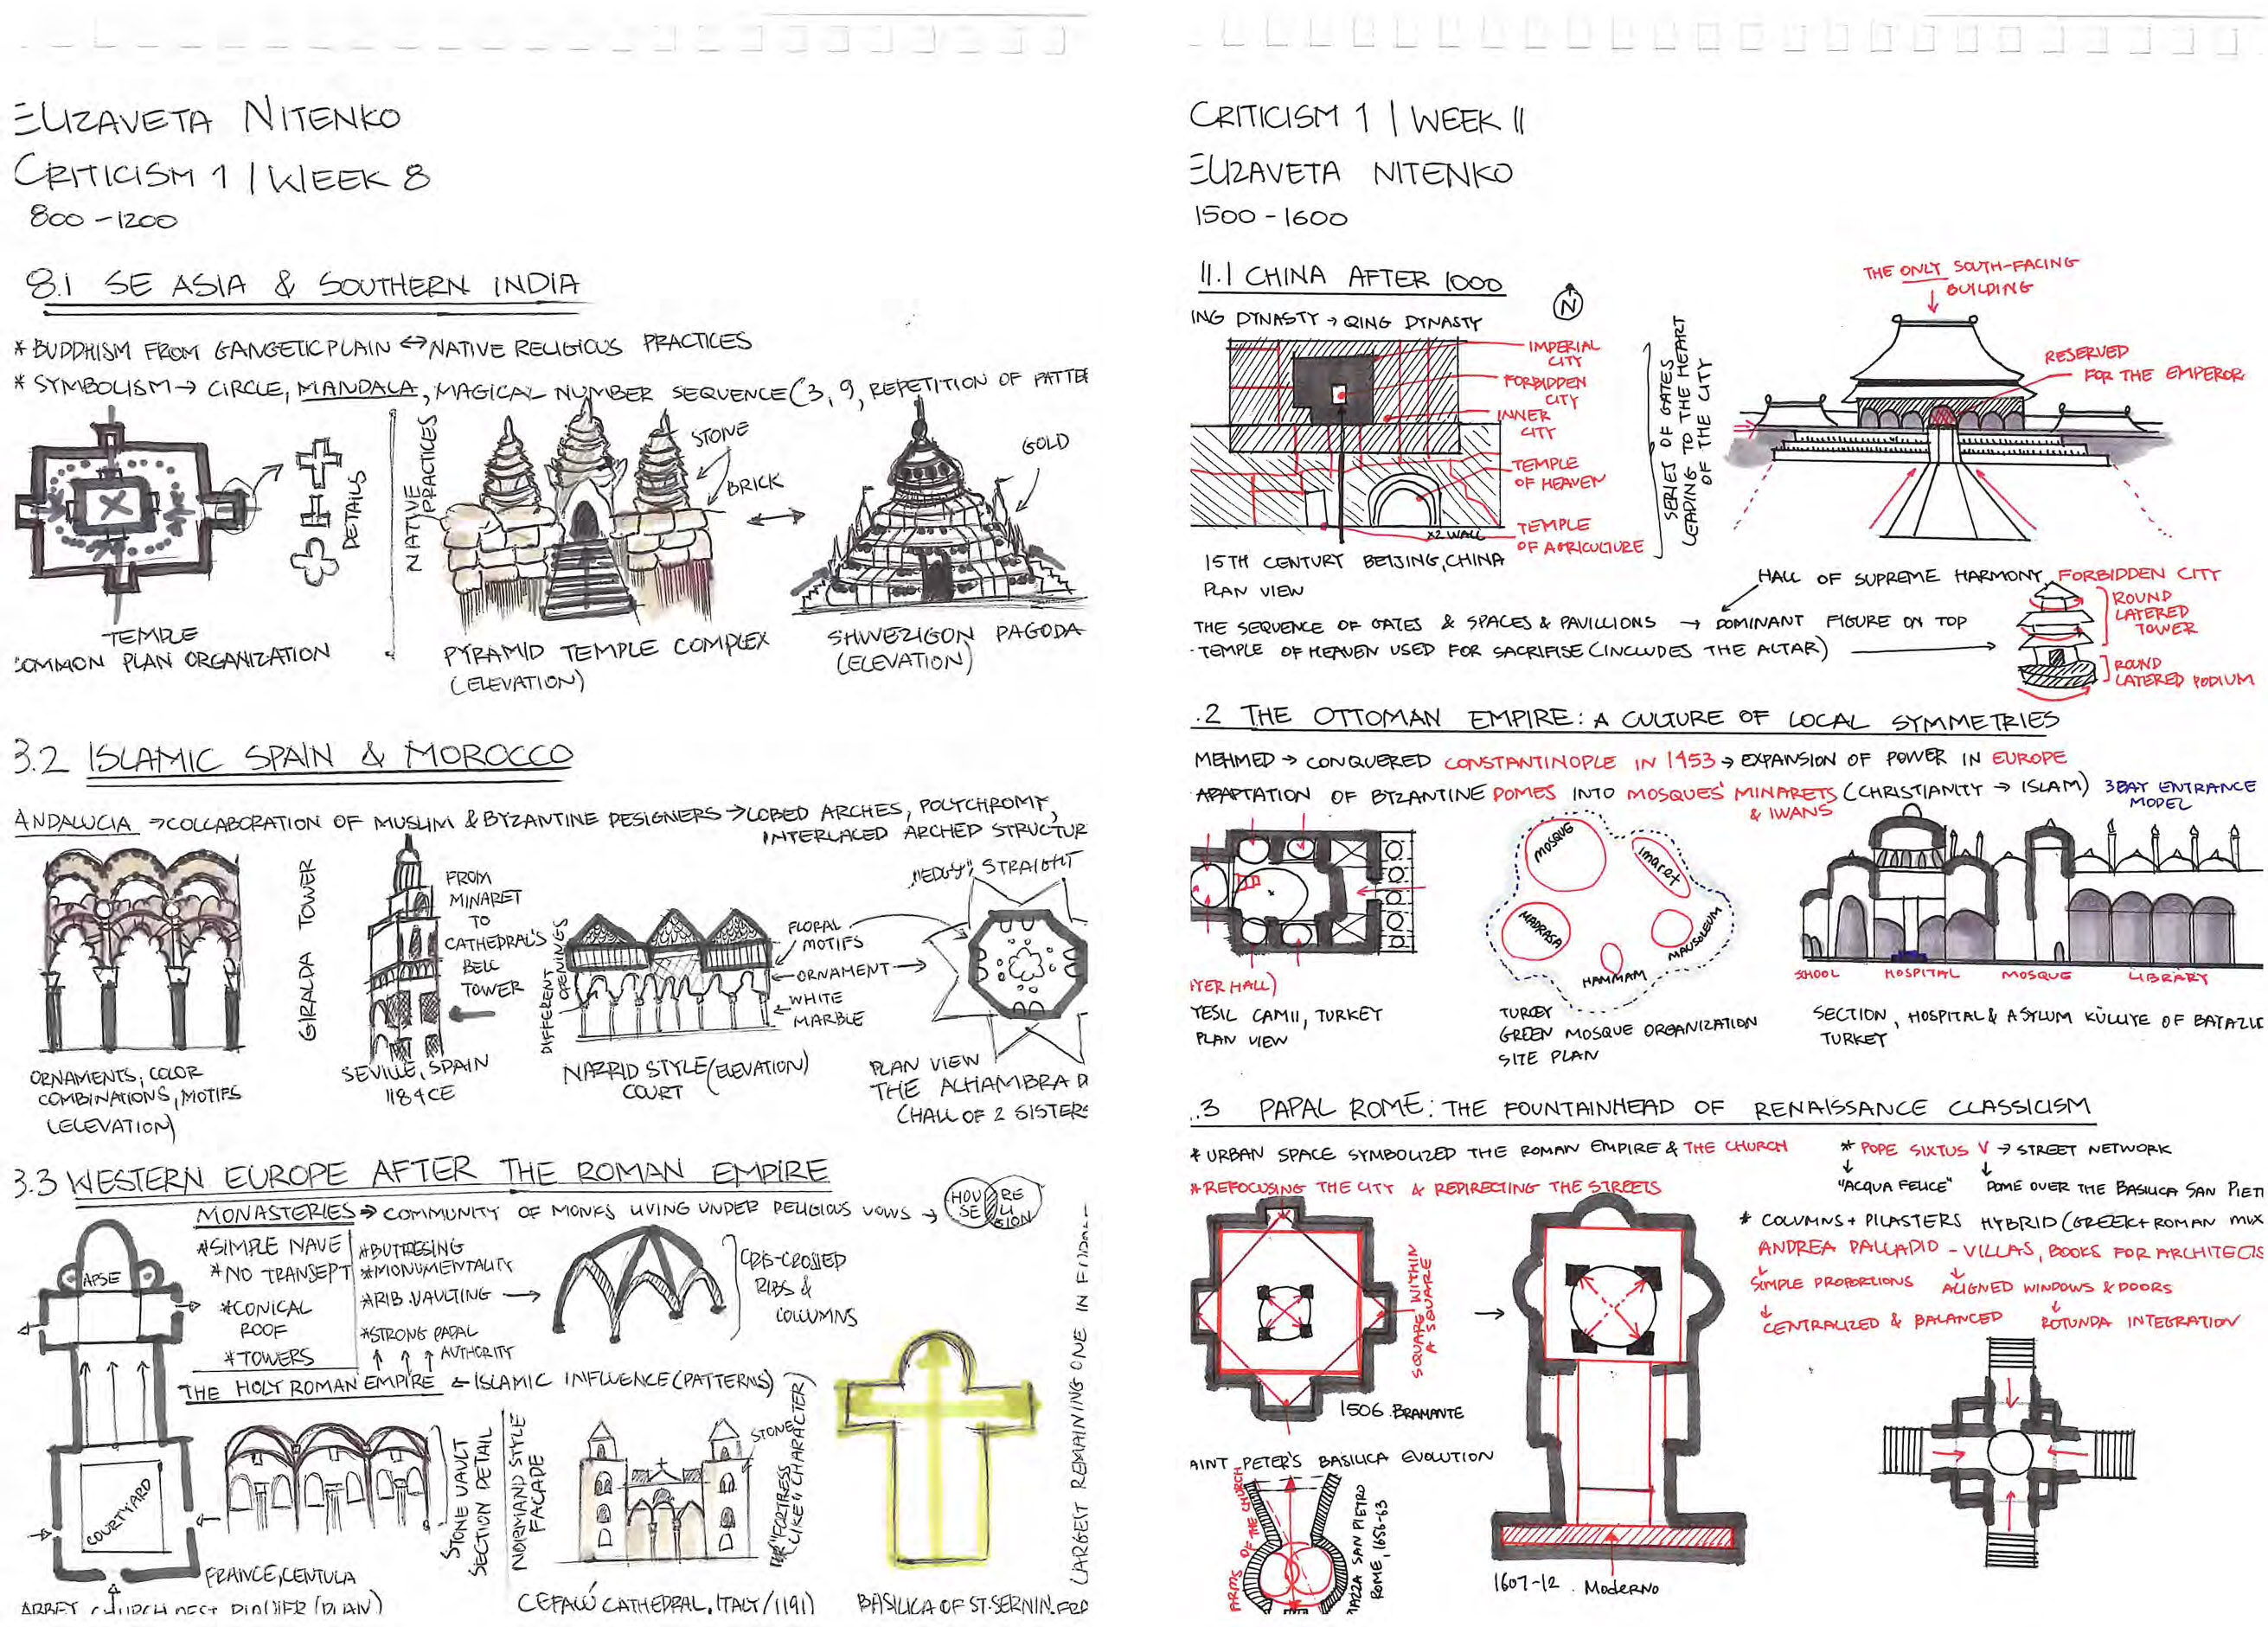 ELIZAVETA NITENKO
CRITICISM 1 | WEEK 8
800 - 1200
8.1 SE ASIA & SOUTHERN INDIA
* BUDDHISM FROM GANGETIC PLAIN ↔ NATIVE RELIGIOUS PRACTICES
* SYMBOLISM → CIRCLE, MANDALA, MAGICAL NUMBER SEQUENCE (3, 9, REPETITION OF PATTE
DETAILS
NATIVE PRACTICES
STONE
BRICK
GOLD
TEMPLE
COMMON PLAN ORGANIZATION
PYRAMID TEMPLE COMPLEX
(ELEVATION)
SHWEZIGON PAGODA
(ELEVATION)
3.2 ISLAMIC SPAIN & MOROCCO
ANDALUCIA → COLLABORATION OF MUSLIM & BYZANTINE DESIGNERS → LOBED ARCHES, POLYCHROMY,
INTERLACED ARCHED STRUCTUR
GIRALDA TOWER
FROM
MINARET
TO
CATHEDRAL'S
BELL
TOWER
DIFFERENT
OPENINGS
FLORAL
MOTIFS
ORNAMENT →
WHITE
MARBLE
"EDGY", STRAIGHT
ORNAMENTS, COLOR
COMBINATIONS, MOTIFS
(ELEVATION)
SEVILLE, SPAIN
1184 CE
NAZRID STYLE (ELEVATION)
COURT
PLAN VIEW
THE ALHAMBRA
(HALL OF 2 SISTERS
3.3 WESTERN EUROPE AFTER THE ROMAN EMPIRE
MONASTERIES → COMMUNITY OF MONKS LIVING UNDER RELIGIOUS VOWS →
HOU
SE
RE
LI
GION
* SIMPLE NAVE
* NO TRANSEPT
* CONICAL
ROOF
* TOWERS
* BUTTRESING
* MONUMENTALITY
* RIB VAULTING →
* STRONG PAPAL
AUTHORITY
CRIS-CROSSED
RIBS &
COLUMNS
APSE
THE HOLY ROMAN EMPIRE ← ISLAMIC INFLUENCE (PATTERNS)
COURTYARD
STONE VAULT
SECTION DETAIL
NORMAND STYLE
FACADE
STONE
"FORTRESS
LIKE" CHARACTER
LARGEST REMAINING ONE IN
FRANCE, CENTULA
ABBEY CHURCH (PLAN)
CEFALÚ CATHEDRAL, ITALY / 1191)
BASILICA OF ST. SERNIN, FRA
CRITICISM 1 | WEEK 11
ELIZAVETA NITENKO
1500 - 1600
11.1 CHINA AFTER 1000
N
ING DYNASTY → QING DYNASTY
IMPERIAL
CITY
FORBIDDEN
CITY
INNER
CITY
TEMPLE
OF HEAVEN
TEMPLE
OF AGRICULTURE
x2 WALL
SERIES OF GATES
LEADING TO THE HEART
OF THE CITY
THE ONLY SOUTH-FACING
BUILDING
RESERVED
FOR THE EMPEROR
15TH CENTURY BEIJING, CHINA
PLAN VIEW
HALL OF SUPREME HARMONY, FORBIDDEN CITY
THE SEQUENCE OF GATES & SPACES & PAVILLIONS → DOMINANT FIGURE ON TOP
- TEMPLE OF HEAVEN USED FOR SACRIFISE (INCLUDES THE ALTAR)
ROUND
LATERED
TOWER
ROUND
LATERED PODIUM
.2 THE OTTOMAN EMPIRE: A CULTURE OF LOCAL SYMMETRIES
MEHMED → CONQUERED CONSTANTINOPLE IN 1453 → EXPANSION OF POWER IN EUROPE
- ADAPTATION OF BYZANTINE DOMES INTO MOSQUES' MINARETS (CHRISTIANITY → ISLAM)
& IWANS
3 BAY ENTRANCE
MODEL
MOSQUE
imaret
MADRASA
MAUSOLEUM
HAMMAM
SCHOOL HOSPITAL MOSQUE LIBRARY
TER HALL)
YESIL CAMII, TURKEY
PLAN VIEW
TURKEY
GREEN MOSQUE ORGANIZATION
SITE PLAN
SECTION, HOSPITAL & ASYLUM KÜLLIYE OF
TURKEY
.3 PAPAL ROME: THE FOUNTAINHEAD OF RENAISSANCE CLASSICISM
* URBAN SPACE SYMBOLIZED THE ROMAN EMPIRE & THE CHURCH
* REFOCUSING THE CITY & REDIRECTING THE STREETS
* POPE SIXTUS V → STREET NETWORK
"ACQUA FELICE"
DOME OVER THE BASILICA SAN PIET
* COLUMNS + PILASTERS HYBRID (GREEK + ROMAN MIX
ANDREA PALLADIO - VILLAS, BOOKS FOR ARCHITECTS
SIMPLE PROPORTIONS
ALIGNED WINDOWS & DOORS
CENTRALIZED & BALANCED
ROTUNDA INTEGRATION
SQUARE WITHIN
A SQUARE
1506 BRAMANTE
AINT PETER'S BASILICA EVOLUTION
ARMS OF THE CHURCH
PIAZZA SAN PIETRO
ROME, 1656-63
1607-12 . Moderno